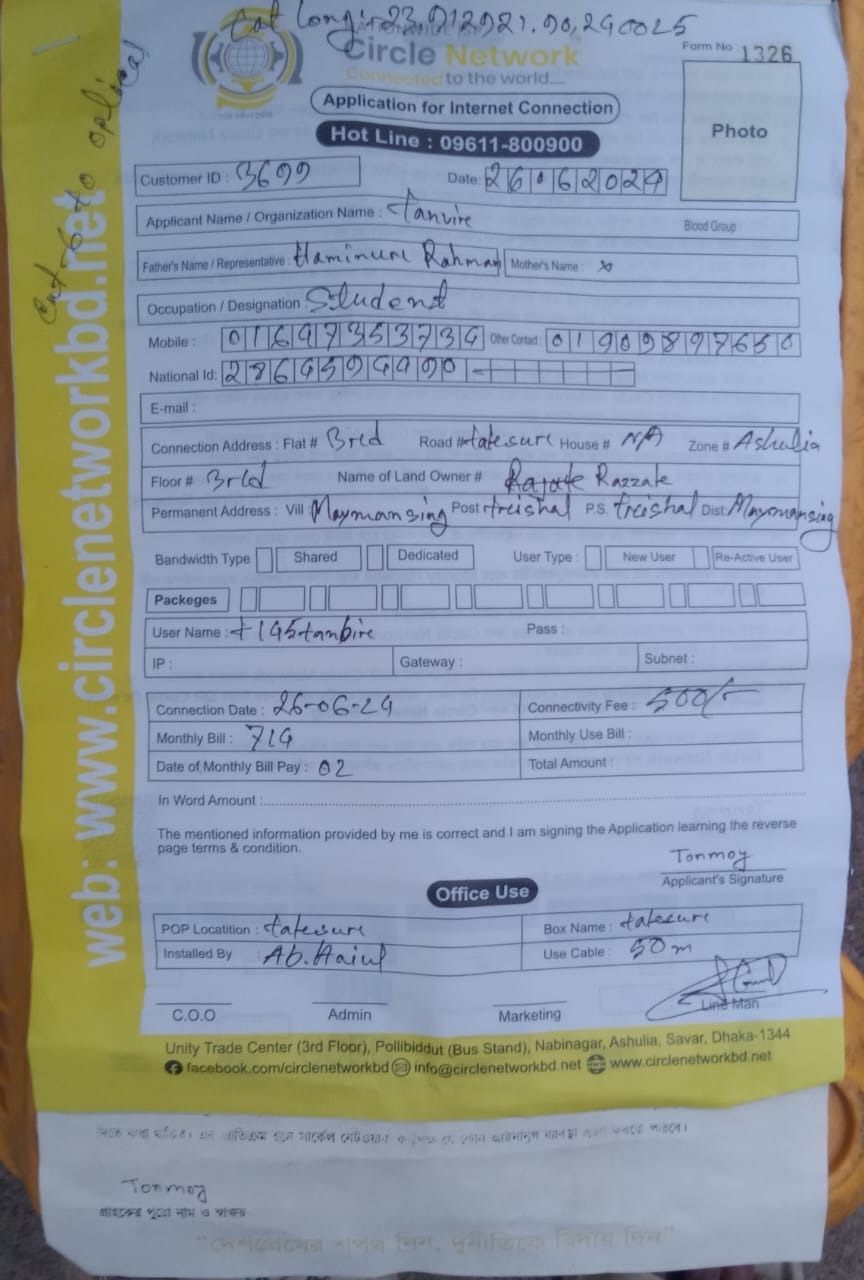 Cat Longi:-23.912921.90,290025
Circle Network
Connected to the world.....
Form No : 1326
Application for Internet Connection
Photo
Hot Line : 09611-800900
Customer ID : 3699
Date: 26062024
Applicant Name / Organization Name : Tanvire
Blood Group
Father's Name / Representative : Haminure Rahman Mother's Name : x
Occupation / Designation : Student
Mobile : 01697353734 Other Contact : 01909897650
National Id: 2864504990 -
E-mail :
Connection Address : Flat # 3rd Road # tatesure House # N/A Zone # Ashulia
Floor # 3rd Name of Land Owner # Razzak
Permanent Address : Vill Maymansing Post treishal P.S. treishal Dist: Maymansing
Bandwidth Type Shared Dedicated User Type : New User Re-Active User
Packeges
User Name : t195tanbire Pass :
IP : Gateway : Subnet :
Connection Date : 26-06-24 Connectivity Fee : 500/-
Monthly Bill : 714 Monthly Use Bill :
Date of Monthly Bill Pay : 02 Total Amount :
In Word Amount :
The mentioned information provided by me is correct and I am signing the Application learning the reverse
page terms & condition.
Tonmoy
Applicant's Signature
Office Use
POP Locatition : tatesure Box Name : tatesure
Installed By : Ab. Haiul Use Cable : 50 m
C.O.O Admin Marketing Line Man
Unity Trade Center (3rd Floor), Pollibiddut (Bus Stand), Nabinagar, Ashulia, Savar, Dhaka-1344
facebook.com/circlenetworkbd info@circlenetworkbd.net www.circlenetworkbd.net
web: www.circlenetworkbd.net
Cat-6 to optical
Tonmoy
গ্রাহকের পুরো নাম ও স্বাক্ষর
"দেশপ্রেমের শপথ নিন, দুর্নীতিকে বিদায় দিন"